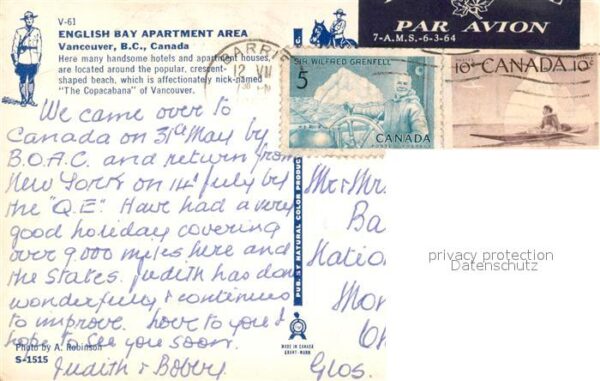 V-61
ENGLISH BAY APARTMENT AREA
Vancouver, B.C., Canada
Here many handsome hotels and apartment houses,
are located around the popular, crescent-
shaped beach, which is affectionately nick-named
"The Copacabana" of Vancouver.
We came over to
Canada on 31st May by
B.O.A.C. and return from
New York on 14th July by
the "Q.E." Have had a very
good holiday covering
over 9,000 miles here and
the States. Judith has don
wonderfully & continues
to improve. love to you &
hope to see you soon.
Judith & Bobby
Photo by A. Robinson
S-1515
PUB. BY NATURAL COLOR PRODUC
MADE IN CANADA
PAR AVION
7-A.M.S.-6-3-64
BARRI
12 VII
SIR WILFRED GRENFELL
5
CANADA
POSTES POSTAGE
10¢ CANADA 10¢
Mr & Mrs
Ba
Natio
Mo
Ch
Glos.
privacy protection
Datenschutz